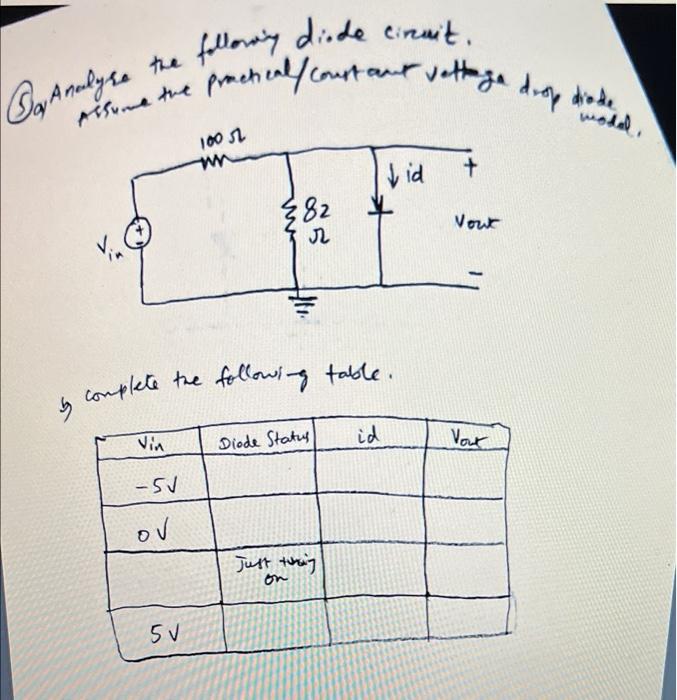 5 a) Analyse the following diode circuit.
Assume the practical/constant voltage drop diode model.
100 Ω
↓ id
+
82
Ω
Vout
Vin
+
-
-
b) complete the following table.
Vin Diode Status id Vout
-5V
0V
Just turing on
5V